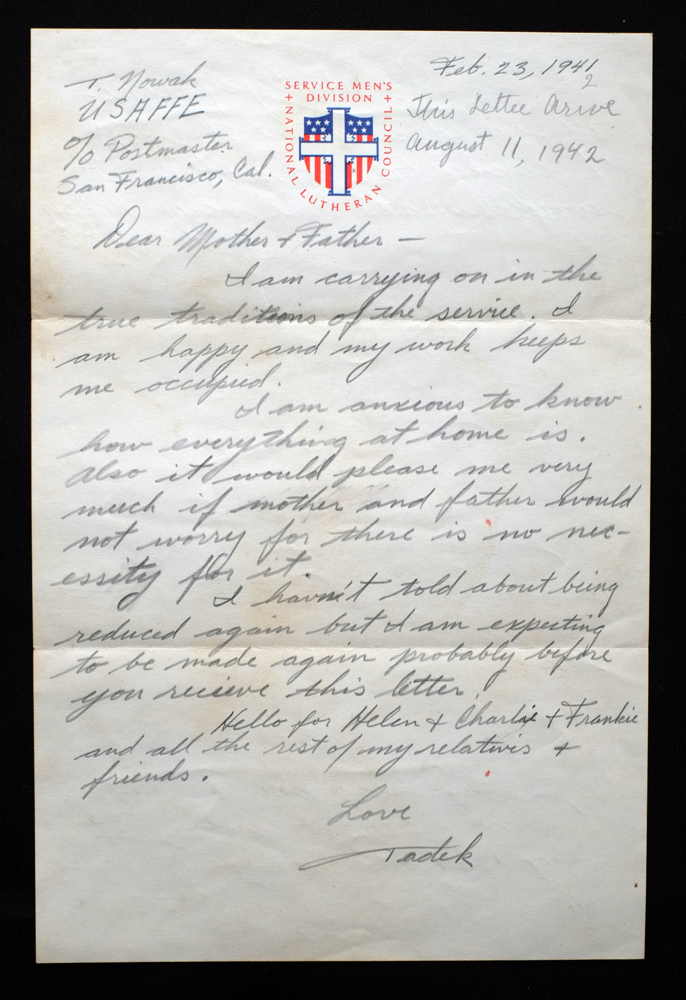 T. Nowak
USAFFE
c/o Postmaster
San Francisco, Cal.
SERVICE MEN'S
DIVISION
+ NATIONAL LUTHERAN COUNCIL +
Feb. 23, 1941
2
This Letter Arive
August 11, 1942
Dear Mother & Father —
I am carrying on in the
true traditions of the service. I
am happy and my work keeps
me occupied.
I am anxious to know
how everything at home is.
Also it would please me very
much if mother and father would
not worry for there is no nec-
essity for it.
I havn't told about being
reduced again but I am expecting
to be made again probably before
you recieve this letter.
Hello for Helen & Charlie & Frankie
and all the rest of my relativis &
friends.
Love
Tadek